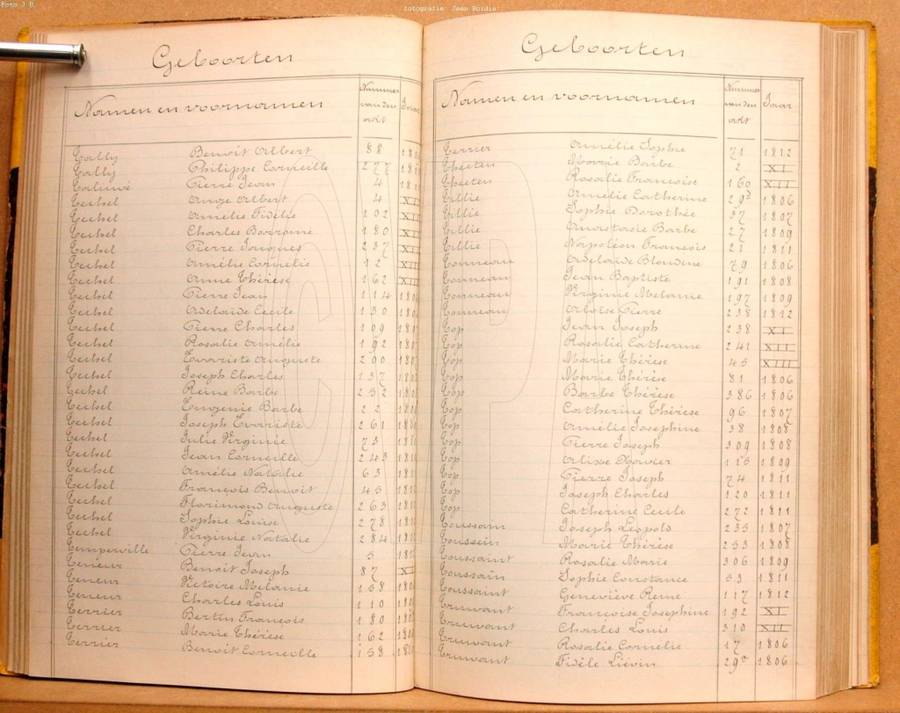 Foto J B
fotografie: Jean Boidin
Geboorten
Namen en voornamen Nummer van den acte Jaar
Tally Benoit Albert 88
Tally Philippe Corneille 277
Pierre Jean 4
Techel Ange Albert 4
Techel Amélie Fidélie 102
Techel Charles 180
Techel Pierre Jacques 237
Techel Amélie Cornélie 12
Techel Anne Thérèse 162
Techel Pierre Jean 114
Techel Adelaide Cecile 130
Techel Pierre Charles 109
Techel Rosalie Amélie 192
Techel Evariste Auguste 200
Techel Joseph Charles 137
Techel Reine Barbe 252
Techel Eugenie Barbe 22
Techel Joseph Evariste 261
Techel Julie Virginie 73
Techel Jean Corneille 243
Techel Amélie Natalie 63
Techel François Benoit 45
Techel Florimond Auguste 263
Techel Sophie Louise 278
Techel Virginie Natalie 284
Temperville Pierre Jean 5
Teneur Benoit Joseph 87
Teneur Victoire Mélanie 158
Teneur Charles Louis 110
Terrier Bertin François 180
Terrier Marie Thérèse 162
Terrier Benoit Corneille 158
Geboorten
Namen en voornamen Nummer van den acte Jaar
Terrier Amélie Sophie 71 1812
Theeten Marie Barbe 2 XI
Theeten Rosalie Françoise 160 XII
Tillie Amélie Catherine 1806
Tillie Sophie Dorothée 37 1807
Tillie Anastasie Barbe 27 1809
Tillie Napoléon François 21 1811
Tonneau Adelaide Blondine 79 1806
Tonneau Jean Baptiste 191 1808
Tonneau Virginie Melanie 197 1809
Tonneau Pierre 238 1812
Top Jean Joseph 238 XI
Top Rosalie Catherine 241 XII
Top Marie Thérèse 45 XIII
Top Marie Thérèse 81 1806
Top Barbe Thérèse 386 1806
Top Catherine Thérèse 96 1807
Top Amélie Josephine 38 1808
Top Pierre Joseph 309 1808
Top Xavier 1809
Top Pierre Joseph 74 1811
Top Joseph Charles 120 1811
Top Catherine Cecile 272 1811
Toussain Joseph Léopold 235 1807
Toussein Marie Thérèse 253 1808
Toussaint Rosalie Marie 306 1809
Toussain Sophie Constance 53 1811
Toussaint Geneviève Reine 117 1812
Truwant Françoise Josephine 192 XI
Truwant Charles Louis 310 XII
Truwant Rosalie Cornelie 17 1806
Truwant Fidèle Lievin 1806